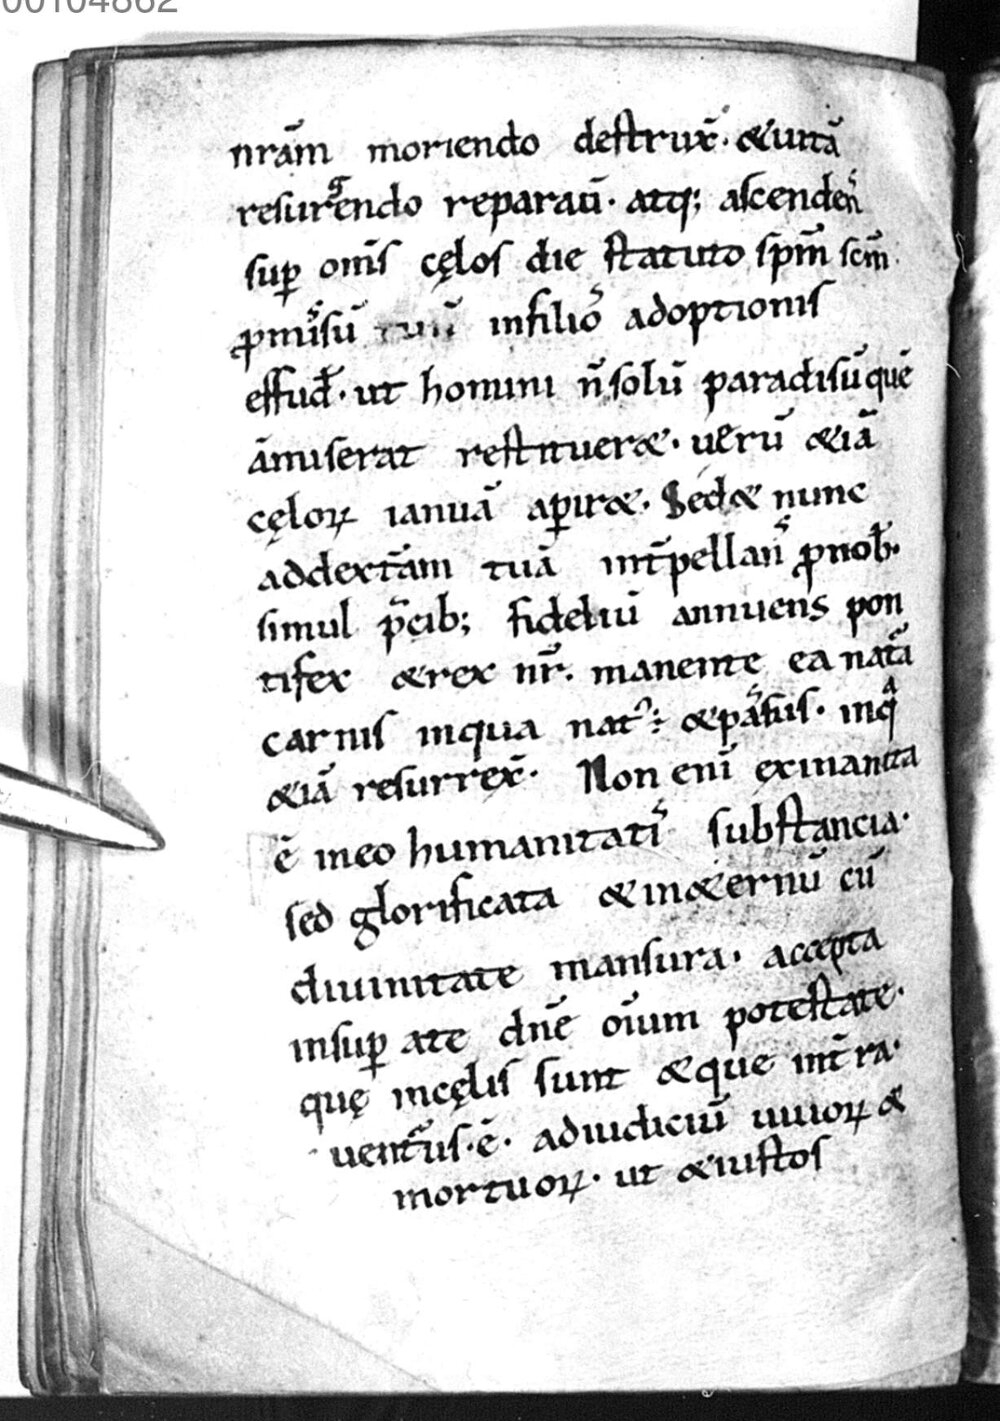 00104862
nrām moriendo destrux̄· &uitā
resurgendo reparauī· atq; ascendenſ
sup̱ om̄s cęlos die statuto sp̄m sc̄m·
ꝓmissū tuū infilioꝝ adoptionis
effud̄· ut homini n̄ solū paradisū quē
āmiserat restituer&· uerū &iā
cęloꝝ ianuā aꝑir&· Sed& nunc
addext̄am tuā int̄pellanſ ꝓnob̄·
simul p̄cib; fideliū annuens pon
tifex &rex nr̄· manente ea nat̄a
carnis inqua nat᷒: &passus· inqᵃ
&iā resurrex̄· Non enī exinanita
ē ineo humanitatiſ substancia·
sed glorificata & in&ernū cū
diuinitate mansura· accepta
insuꝑ ate dn̄e oīum potestate·
quę incęlis sunt &que int̄ra·
uent̄us·ē· adiudiciū uiuoꝝ &
mortuoꝝ· ut &iustos